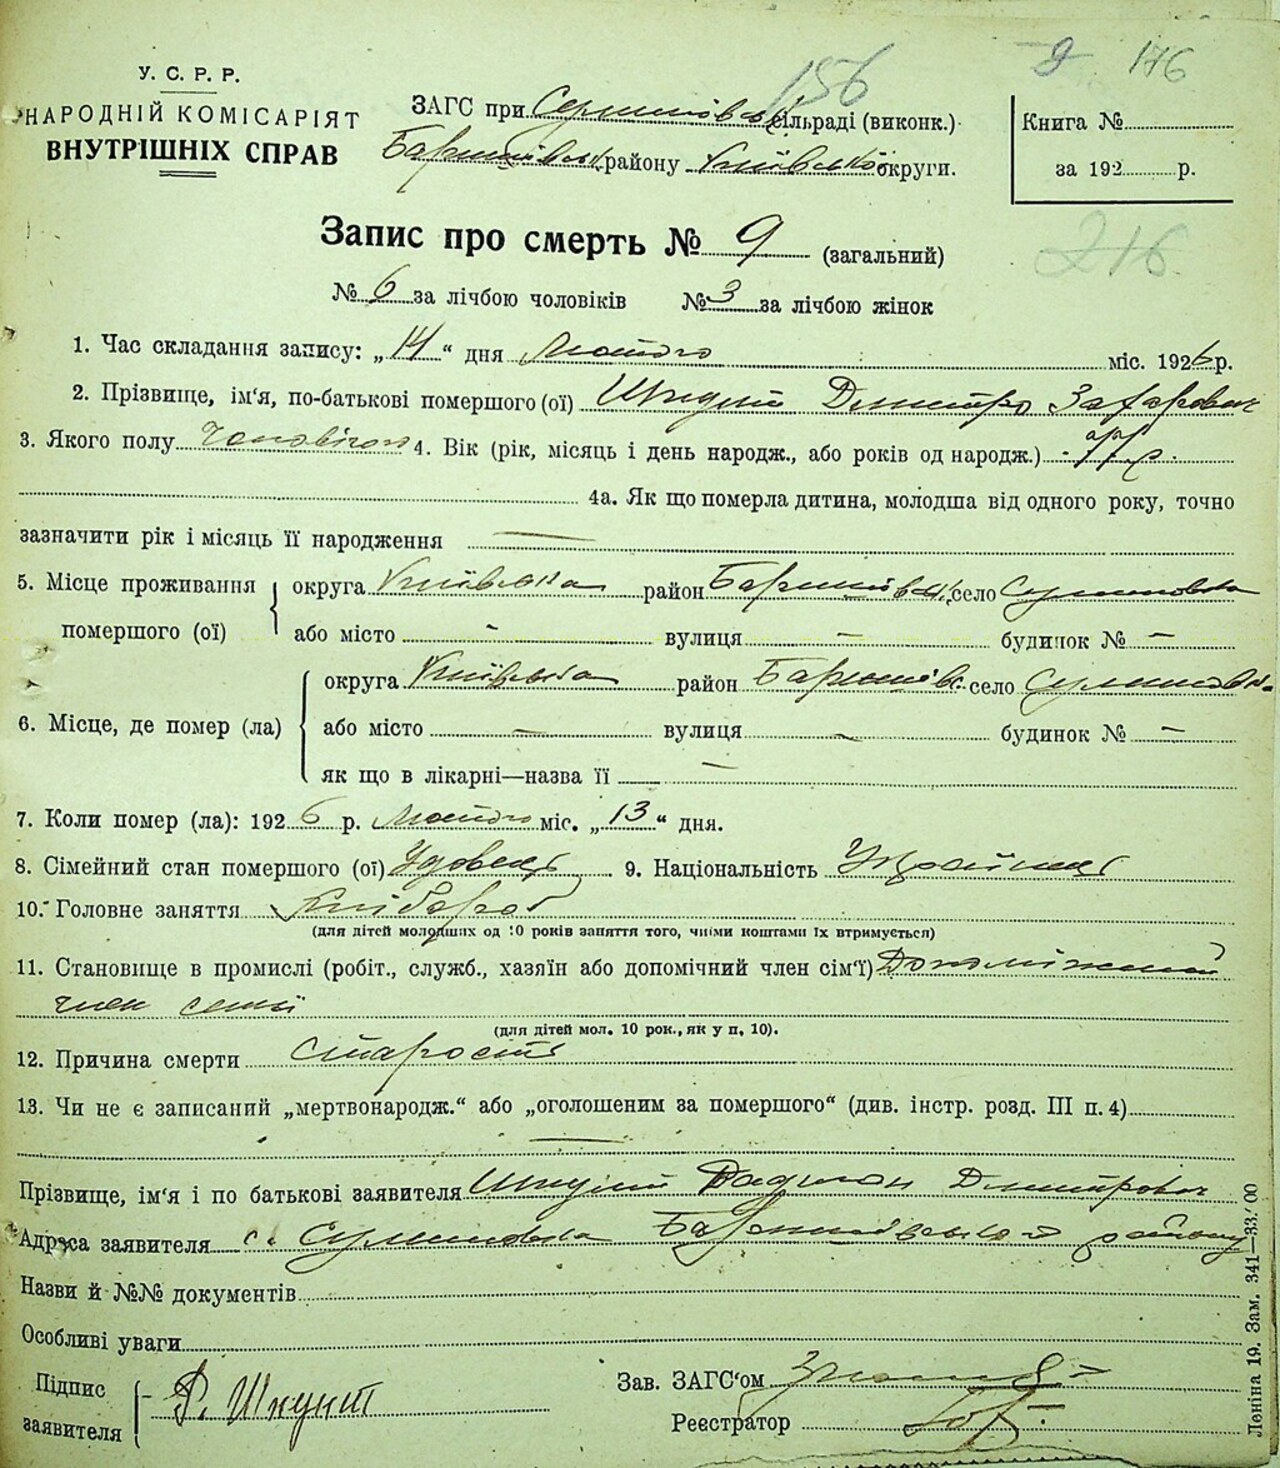 156
9 176
У. С. Р. Р.
НАРОДНІЙ КОМІСАРІЯТ
ВНУТРІШНІХ СПРАВ
ЗАГС при сільраді (виконк.)
Баришівськ. району Київської округи.
Книга №
за 192 р.
Запис про смерть № 9 (загальний)
216
№ 6 за лічбою чоловіків № 3 за лічбою жінок
1. Час складання запису: „14“ дня Лютого міс. 1926 р.
2. Прізвище, ім‘я, по-батькові помершого (ої) Шкурит Дмитро Захарович
3. Якого полу Чоловічого 4. Вік (рік, місяць і день народж., або років од народж.)
4а. Як що померла дитина, молодша від одного року, точно
зазначити рік і місяць її народження —
5. Місце проживання помершого (ої) округа Київська район Баришівськ. село Сулимовка
або місто - вулиця — будинок № —
6. Місце, де помер (ла) округа Київська район Баришівс. село Сулимовка
або місто — вулиця — будинок № —
як що в лікарні—назва її —
7. Коли помер (ла): 1926 р. Лютого міс. „13“ дня.
8. Сімейний стан помершого (ої) Удовець 9. Національність Українець
10. Головне заняття Хлібороб
(для дітей молодших од 10 років заняття того, чиїми коштами їх втримується)
11. Становище в промислі (робіт., служб., хазяїн або допомічний член сім‘ї) Допоміжний
член семьї
(для дітей мол. 10 рок., як у п. 10).
12. Причина смерти Старость
13. Чи не є записаний „мертвонародж.“ або „оголошеним за помершого“ (див. інстр. розд. III п. 4)
—
Прізвище, ім‘я і по батькові заявителя Шкурит Радион Дмитрович
Адреса заявителя с. Сулимовка Баришівського району
Назви й №№ документів
Особливі уваги
Підпис заявителя Р. Шкурит
Зав. ЗАГС‘ом
Реєстратор
Леніна 19. Зам. 341—33.